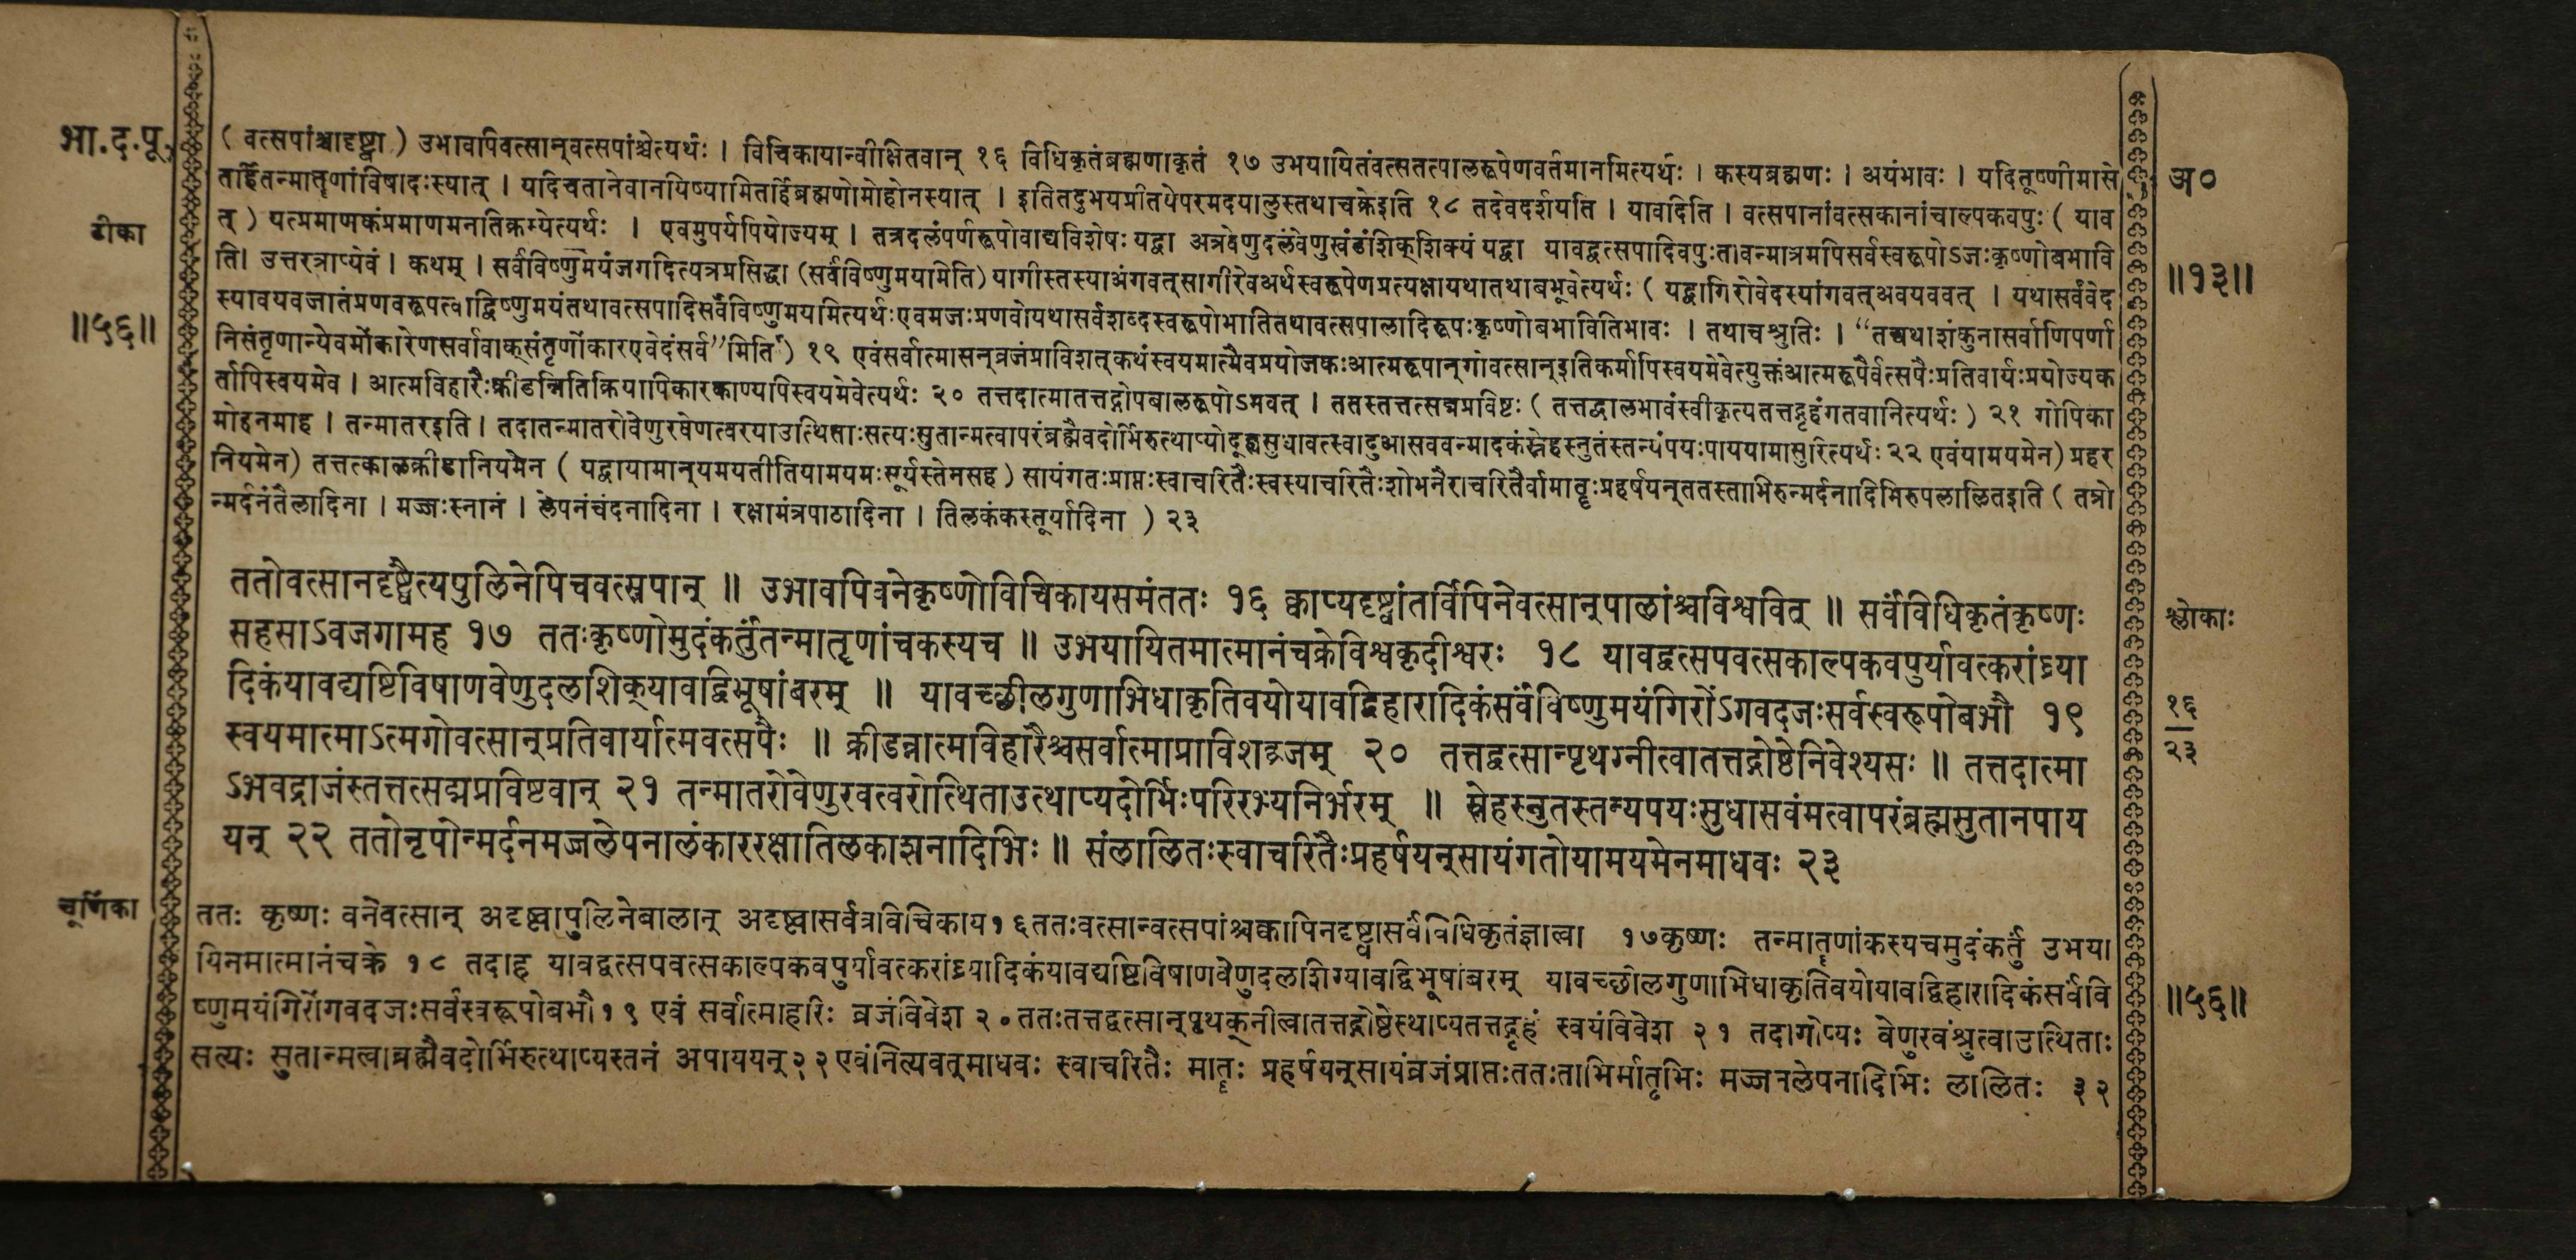 भा.द.पू.
टीका
॥५६॥
(वत्सपांश्चादृष्ट्वा) उभावपिवत्सान्वत्सपांश्चेत्यर्थः । विचिकायान्वीक्षितवान् १६ विधिकृतंब्रह्मणाकृतं १७ उभयायितंवत्सतत्पालरूपेणवर्तमानमित्यर्थः । कस्यब्रह्मणः । अयंभावः । यदितूष्णीमासे
तर्हितन्मातॄणांविषादःस्यात् । यदिचतानेवानयिष्यामितर्हिब्रह्मणोमोहोनस्यात् । इतितदुभयप्रीतयेपरमदयालुस्तथाचक्रेइति १८ तदेवदर्शयति । यावदिति । वत्सपानांवत्सकानांचाल्पकवपुः ( याव
त् ) यत्प्रमाणकंप्रमाणमनतिक्रम्येत्यर्थः । एवमुपर्यपियोज्यम् । तत्रदलंपर्णरूपोवाद्यविशेषः यद्वा अत्रवेणुदलंवेणुखंडंशिक्शिक्यं यद्वा यावद्वत्सपादिवपुःतावन्मात्रमपिसर्वस्वरूपोऽजःकृष्णोबभावि
ति। उत्तरत्राप्येवं । कथम् । सर्वंविष्णुमयंजगदित्यत्रप्रसिद्धा (सर्वंविष्णुमयामेति) यागीस्तस्याअंगवत्सागीरेवअर्थस्वरूपेणप्रत्यक्षायथातथाबभूवेत्यर्थः ( यद्वागिरोवेदस्यांगवत्अवयववत् । यथासर्वंवेद
स्यावयवजातंप्रणवरूपत्वाद्विष्णुमयंतथावत्सपादिसर्वंविष्णुमयमित्यर्थःएवमजःप्रणवोयथासर्वशब्दस्वरूपोभातितथावत्सपालादिरूपःकृष्णोबभावितिभावः । तथाचश्रुतिः । “तद्यथाशंकुनासर्वाणिपर्णा
निसंतृणान्येवमोंकारेणसर्वावाक्संतृणोंकारएवेदंसर्व”मिति ) १९ एवंसर्वात्मासन्व्रजंप्राविशत्कथंस्वयमात्मैवप्रयोजकःआत्मरूपान्गोवत्सान्इतिकर्मापिस्वयमेवेत्युक्तंआत्मरूपैर्वत्सपैःप्रतिवार्यःप्रयोज्यक
र्तापिस्वयमेव । आत्मविहारैःक्रीडन्नितिक्रियापिकारकाण्यपिस्वयमेवेत्यर्थः २० तत्तदात्मातत्तद्गोपबालरूपोऽभवत् । ततस्तत्तत्सद्मप्रविष्टः ( तत्तद्बालभावंस्वीकृत्यतत्तद्गृहंगतवानित्यर्थः ) २१ गोपिका
मोहनमाह । तन्मातरइति । तदातन्मातरोवेणुरवेणत्वरयाउत्थिताःसत्यःसुतान्मत्वापरंब्रह्मैवदोर्भिरुत्थाप्योदूह्यसुधावत्स्वादुआसववन्मादकंस्नेहस्नुतंस्तन्यंपयःपाययामासुरित्यर्थः २२ एवंयामयमेन) प्रहर
नियमेन) तत्तत्कालक्रीडानियमेन ( यद्वायामान्यमयतीतियामयमःसूर्यस्तेनसह ) सायंगतःप्राप्तःस्वाचरितैःस्वस्याचरितैःशोभनैराचरितैर्वामातॄःप्रहर्षयन्ततस्ताभिरुन्मर्दनादिभिरुपलालितइति ( तत्रो
न्मर्दनंतैलादिना । मज्जःस्नानं । लेपनंचंदनादिना । रक्षामंत्रपाठादिना । तिलकंकस्तूर्यादिना ) २३
ततोवत्सानदृष्ट्वैत्यपुलिनेपिचवत्सपान् ॥ उभावपिवनेकृष्णोविचिकायसमंततः १६ क्वाप्यदृष्ट्वांतर्विपिनेवत्सान्पालांश्चविश्ववित् ॥ सर्वंविधिकृतंकृष्णः
सहसाऽवजगामह १७ ततःकृष्णोमुदंकर्तुंतन्मातृणांचकस्यच ॥ उभयायितमात्मानंचक्रेविश्वकृदीश्वरः १८ यावद्वत्सपवत्सकाल्पकवपुर्यावत्करांघ्र्या
दिकंयावद्यष्टिविषाणवेणुदलशिक्यावद्विभूषांबरम् ॥ यावच्छीलगुणाभिधाकृतिवयोयावद्विहारादिकंसर्वंविष्णुमयंगिरोंऽगवदजःसर्वस्वरूपोबभौ १९
स्वयमात्माऽत्मगोवत्सान्प्रतिवार्यात्मवत्सपैः ॥ क्रीडन्नात्मविहारैश्चसर्वात्माप्राविशद्व्रजम् २० तत्तद्वत्सान्पृथग्नीत्वातत्तद्गोष्ठेनिवेश्यसः ॥ तत्तदात्मा
ऽभवद्राजंस्तत्तत्सद्मप्रविष्टवान् २१ तन्मातरोवेणुरवत्वरोत्थिताउत्थाप्यदोर्भिःपरिरभ्यनिर्भरम् ॥ स्नेहस्नुतस्तन्यपयःसुधासवंमत्वापरंब्रह्मसुतानपाय
यन् २२ ततोनृपोन्मर्दनमज्जलेपनालंकाररक्षातिलकाशनादिभिः ॥ संलालितःस्वाचरितैःप्रहर्षयन्सायंगतोयामयमेनमाधवः २३
चूर्णिका
ततः कृष्णः वनेवत्सान् अदृष्ट्वापुलिनेबालान् अदृष्ट्वासर्वत्रविचिकाय१६ततःवत्सान्वत्सपांश्चक्वापिनदृष्ट्वासर्वंविधिकृतंज्ञात्वा १७कृष्णः तन्मातॄणांकस्यचमुदंकर्तुं उभया
यिनमात्मानंचक्रे १८ तदाह यावद्वत्सपवत्सकाल्पकवपुर्यावत्करांघ्र्यादिकंयावद्यष्टिविषाणवेणुदलशिग्यावद्विभूषांबरम् यावच्छीलगुणाभिधाकृतिवयोयावद्विहारादिकंसर्वंवि
ष्णुमयंगिरोंगवदजःसर्वस्वरूपोबभौ१९ एवं सर्वात्माहरिः व्रजंविवेश २०ततःतत्तद्वत्सान्पृथक्नीत्वातत्तद्गोष्ठेस्थाप्यतत्तद्गृहं स्वयंविवेश २१ तदागोप्यः वेणुरवंश्रुत्वाउत्थिताः
सत्यः सुतान्मत्वाब्रह्मैवदोर्भिरुत्थाप्यस्तनं अपाययन्२२एवंनित्यवत्माधवः स्वाचरितैः मातॄः प्रहर्षयन्सायंव्रजंप्राप्तःततःताभिर्मातृभिः मज्जनलेपनादिभिः लालितः ३२
अ०
॥१३॥
श्लोकाः
१६
२३
॥५६॥